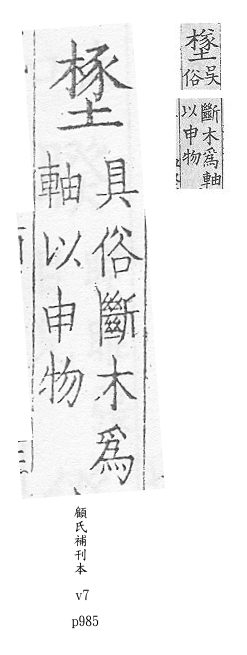 具俗斷木爲
軸以申物
吳俗
斷木爲軸
以申物
顧氏補刊本
v7
p985